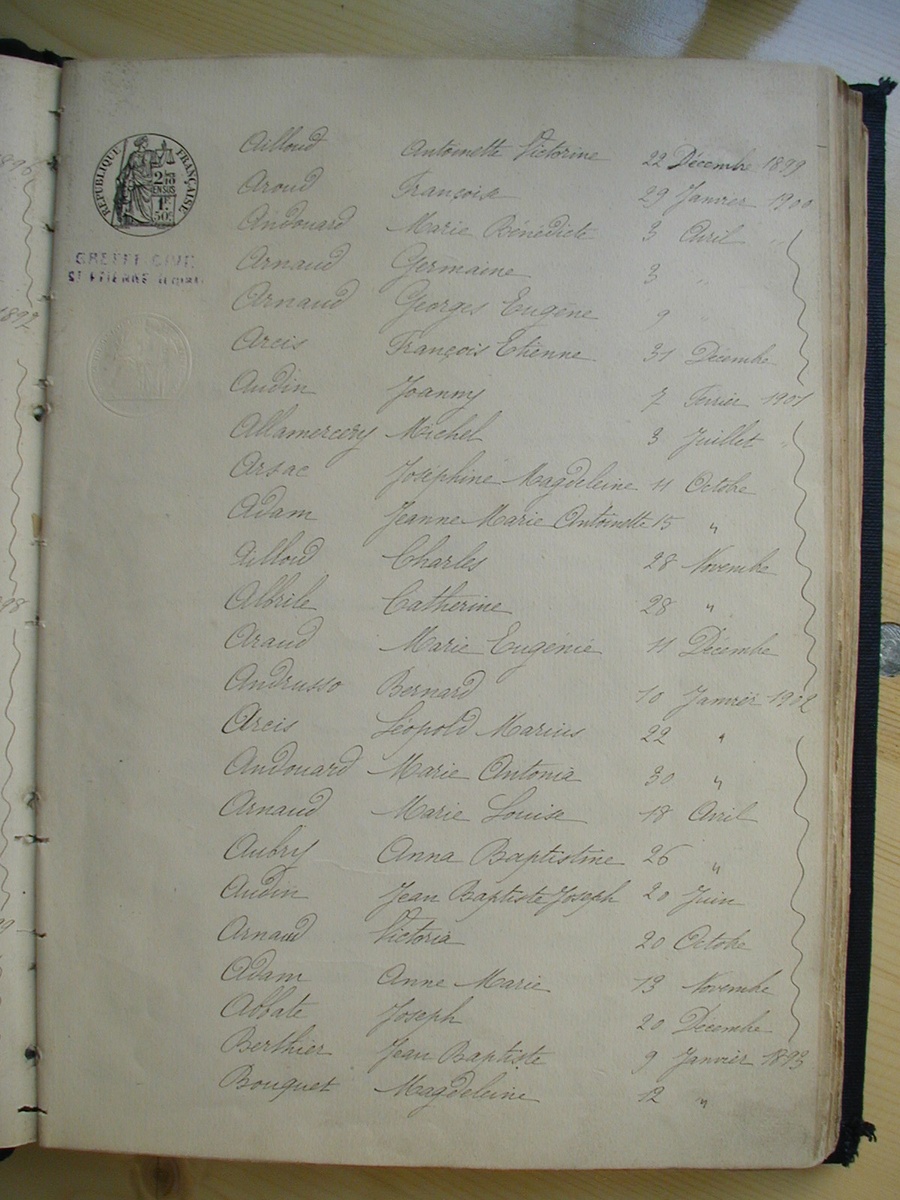 1896
1897
98
99
RÉPUBLIQUE FRANÇAISE
2/10 EN SUS
1F. 50c
GREFFE CIVIL
ST ETIENNE (LOIRE)
Ailloud Antoinette Victorine 22 Décembre 1899
Aroud Françoise 29 Janvier 1900
Andouard Marie Bénédicte 3 Avril "
Arnaud Germaine 3 "
Arnaud Georges Eugène 9 "
Arcis François Etienne 31 Décembre
Audin Joanny 7 Février 1901
Allamercery Michel 3 Juillet "
Arsac Joséphine Magdeleine 11 Octobre
Adam Jeanne Marie Antoinette 15 "
Ailloud Charles 28 Novembre
Albrile Catherine 28 "
Araud Marie Eugénie 11 Décembre
Andrusso Bernard 10 Janvier 1902
Arcis Léopold Marius 22 "
Andouard Marie Antonia 30 "
Arnaud Marie Louise 18 Avril
Aubry Anna Baptistine 26 "
Audin Jean Baptiste Joseph 20 Juin
Arnaud Victoria 20 Octobre
Adam Anne Marie 13 Novembre
Abbate Joseph 20 Décembre
Berthier Jean Baptiste 9 Janvier 1893
Bouquet Magdeleine 12 "